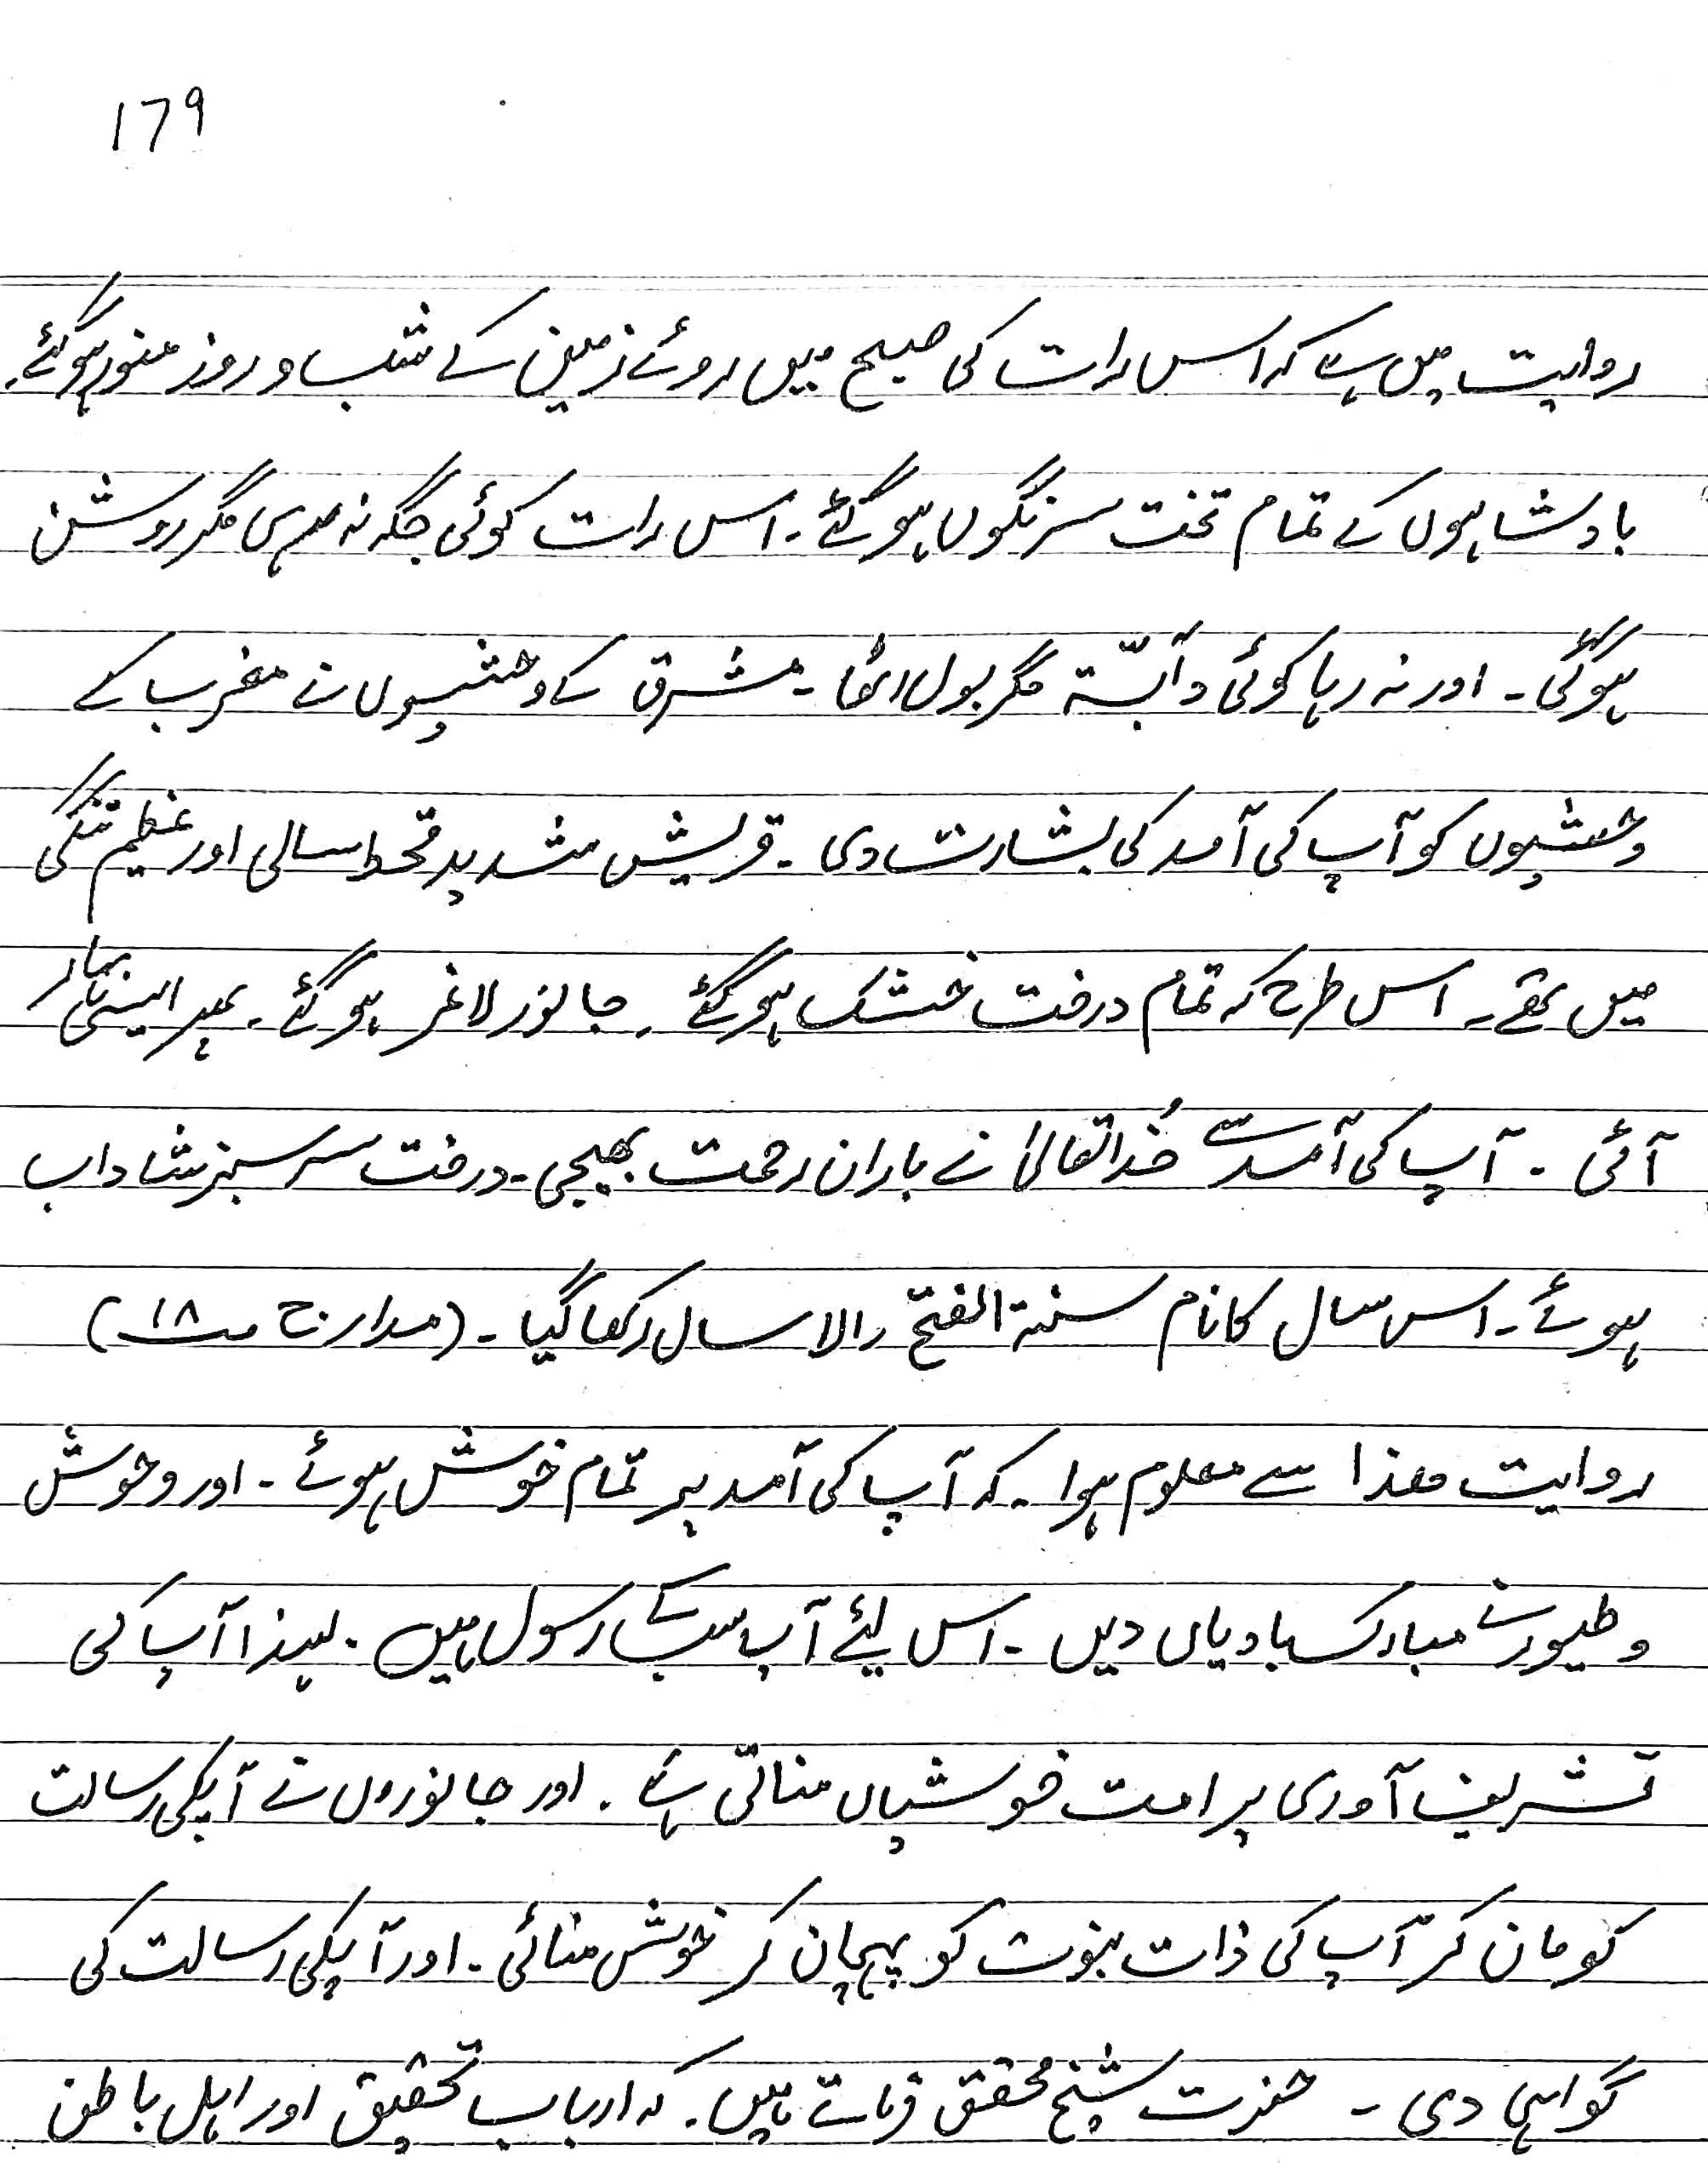 179
روایت میں ہے کہ اس رات کی صبح میں روئے زمین کے شب و روز منور ہوگئے۔
بادشاہوں کے تمام تخت سرنگوں ہوگئے۔ اس رات کوئی جگہ نہ رہی مگر روشن
ہوگئی۔ اور نہ رہا کوئی دآبّۃ مگر بول اٹھا۔ مشرق کے وحشیوں نے مغرب کے
وحشیوں کو آپ کی آمد کی بشارت دی۔ قریش شدید قحط سالی اور عظیم تنگی
میں تھے۔ اس طرح کہ تمام درخت خشک ہوگئے۔ جانور لاغر ہوگئے۔ پھر ایسی بہار
آئی۔ آپ کی آمد سے خُدا تعالیٰ نے باران رحمت بھیجی۔ درخت سرسبز شاداب
ہوئے۔ اس سال کا نام سنۃ الفتح والا سال رکھا گیا۔ (مدارج ص ۱۸)
روایت ھذا سے معلوم ہوا۔ کہ آپ کی آمد پر تمام خوش ہوئے۔ اور وحوش
و طیور نے مبارک بادیاں دیں۔ اس لیئے آپ سب کے رسول ہیں۔ لہذا آپ کی
تشریف آوری پر امت خوشیاں مناتی ہے۔ اور جانوروں نے آپکی رسالت
کو مان کر آپ کی ذات نبوت کو پہچان کر خوشی منائی۔ اور آپکی رسالت کی
گواہی دی۔ حضرت شیخ محقق فرماتے ہیں۔ کہ ارباب تحقیق اور اہل باطن